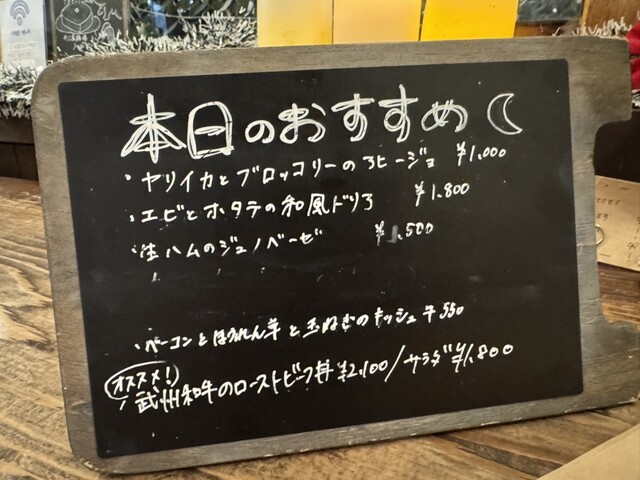 本日のおすすめ
・ヤリイカとブロッコリーのアヒージョ ¥1,000
・エビとホタテの和風ドリア ¥1,800
・生ハムのジェノベーゼ ¥1,500
・ベーコンとほうれん草と玉ねぎのキッシュ ¥550
オススメ!
・武州和牛のローストビーフ丼 ¥2,100/サラダ ¥1,800